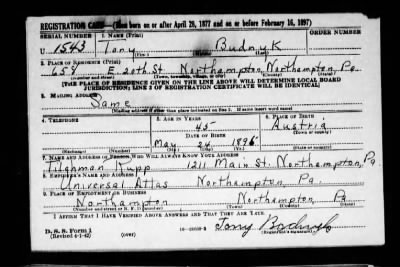 REGISTRATION CARD—(Men born on or after April 28, 1877 and on or before February 16, 1897)
SERIAL NUMBER 1. NAME (Print) ORDER NUMBER
U 1543 Tony Budnyk
(First) (Middle) (Last)
2. PLACE OF RESIDENCE (Print)
659 E. 20th St. Northampton, Northampton, Pa.
(Number and street) (Town, township, village, or city) (County) (State)
[THE PLACE OF RESIDENCE GIVEN ON THE LINE ABOVE WILL DETERMINE LOCAL BOARD
JURISDICTION; LINE 2 OF REGISTRATION CERTIFICATE WILL BE IDENTICAL]
3. MAILING ADDRESS
Same
[Mailing address if other than place indicated on line 2. If same insert word same]
4. TELEPHONE 5. AGE IN YEARS 6. PLACE OF BIRTH
45 Austria
DATE OF BIRTH
May 24 1896
(Exchange) (Number) (Mo.) (Day) (Yr.) (State or country)
7. NAME AND ADDRESS OF PERSON WHO WILL ALWAYS KNOW YOUR ADDRESS
Tilghman Trupp 1211 Main St. Northampton, Pa.
8. EMPLOYER'S NAME AND ADDRESS
Universal Atlas Northampton, Pa.
9. PLACE OF EMPLOYMENT OR BUSINESS
Northampton Northampton, Pa
(Number and street or R. F. D. number) (Town) (County) (State)
I AFFIRM THAT I HAVE VERIFIED ABOVE ANSWERS AND THAT THEY ARE TRUE.
D. S. S. Form 1
(Revised 4-1-42) (over) Tony Budnyk
(Registrant's signature)